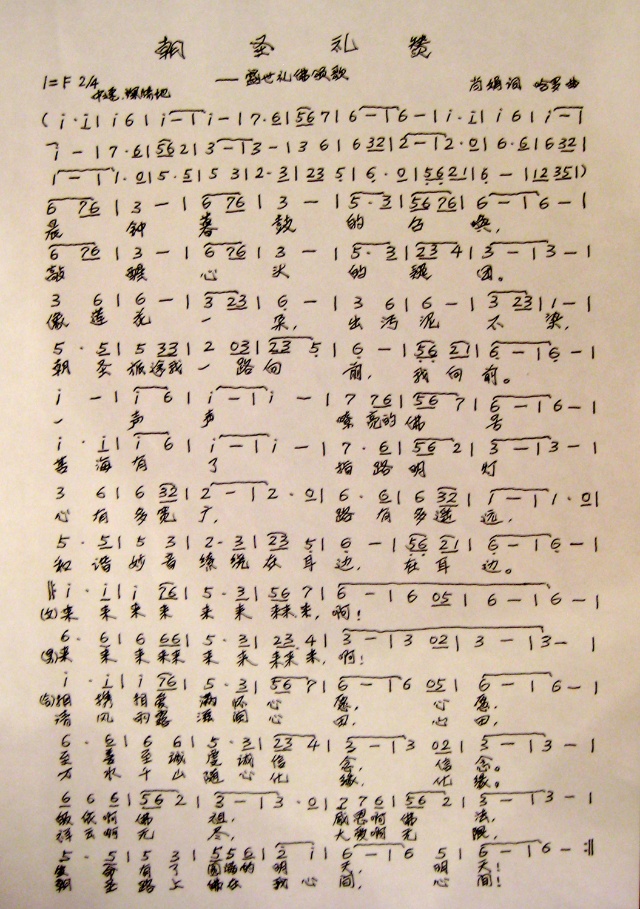 朝圣礼赞
1=F 2/4 ——盛世礼佛颂歌 肖娟词 哈罗曲
中速、深情地
(i·i|i6|i-|i-|7·6|567|6-|6-|i·i|i6|i-|
i-|7·6|562|3-|3-|36|632|2-|2·0|6·6|632|
1-|1·0|5·5|53|2·3|235|6·0|5621|6-|12351)
676|3-|676|3-|5·3|5676|6-|6-|
晨钟暮鼓的召唤,
676|3-|676|3-|5·3|234|3-|3-|
敲醒心头的疑团。
36|6-|323|6-|36|6-|323|1-|
像莲花一朵,出污泥不染,
5·5|533|203|235|6-|5621|6-|6-|
朝圣旅途我一路向前,我向前。
i-|i6|i-|i-|776|567|6-|6-|
一声声嘹亮的佛号
i·i|i6|i-|i-|7·6|562|3-|3-|
苦海有了指路明灯
36|632|2-|2·0|6·6|632|1-|1·0|
心有多宽了,路有多遥远,
5·5|53|2·3|235|6-|5621|6-|6-|
和谐妙音缭绕在耳边,在耳边。
‖:i·i|i76|5·3|567|6-|605|6-|6-|
(女)来来来来来来来来来,啊!
6·6|666|5·3|234|3-|302|3-|3-|
(男)来来来来来来来来来来,啊!
i·i|i76|5·3|567|6-|605|6-|6-|
(合)相携相爱满怀心愿,心愿。
清风雨露滋润心田,心田,
6·6|66|5·3|234|3-|302|3-|3-|
至善至诚虔诚信念,信念。
万水千山随心化缘,化缘。
666|562|3-|3·0|276|562|3-|3-|
皈依啊佛祖,感恩啊佛法,
祥云啊无尽,大爱啊无限,
5·5|53|556|2i|6-|65|6-|6-:‖
生命有了圆满的明天,明天!
朝圣路上佛在我心间,心间!